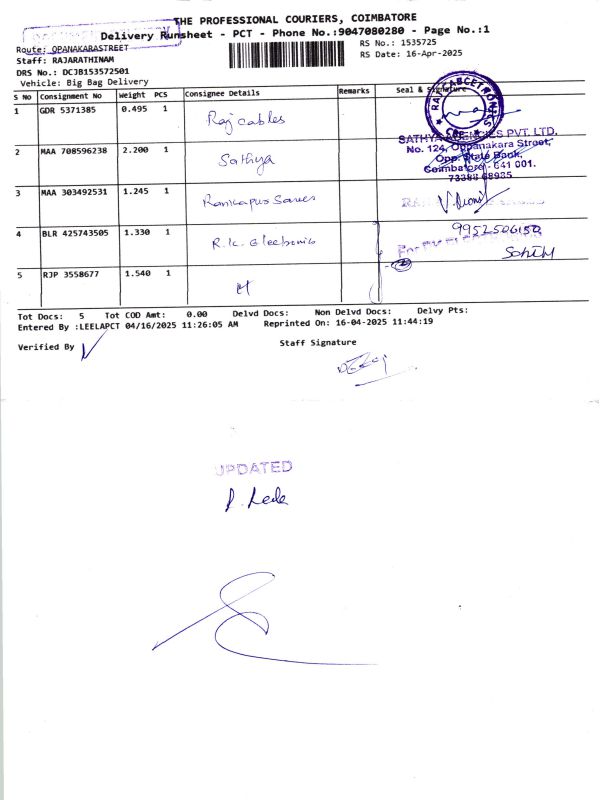 THE PROFESSIONAL COURIERS, COIMBATORE
Delivery Runsheet - PCT - Phone No.:9047080280 - Page No.:1
Route: OPANAKARASTREET
RS No.: 1535725
Staff: RAJARATHINAM
RS Date: 16-Apr-2025
DRS No.: DCJB153572501
Vehicle: Big Bag Delivery
S No Consignment No Weight PCS Consignee Details Remarks Seal & Signature
1 GDR 5371385 0.495 1 Raj cables
2 MAA 708596238 2.200 1 Sathya
SATHYA AGENCIES PVT. LTD.
No. 124, Oppanakara Street,
Opp. State Bank,
Coimbatore - 641 001.
73388 68935
3 MAA 303492531 1.245 1
4 BLR 425743505 1.330 1 R.K.
5 RJP 3558677 1.540 1
Tot Docs: 5 Tot COD Amt: 0.00 Delvd Docs: Non Delvd Docs: Delvy Pts:
Entered By :LEELAPCT 04/16/2025 11:26:05 AM Reprinted On: 16-04-2025 11:44:19
Verified By
Staff Signature
UPDATED